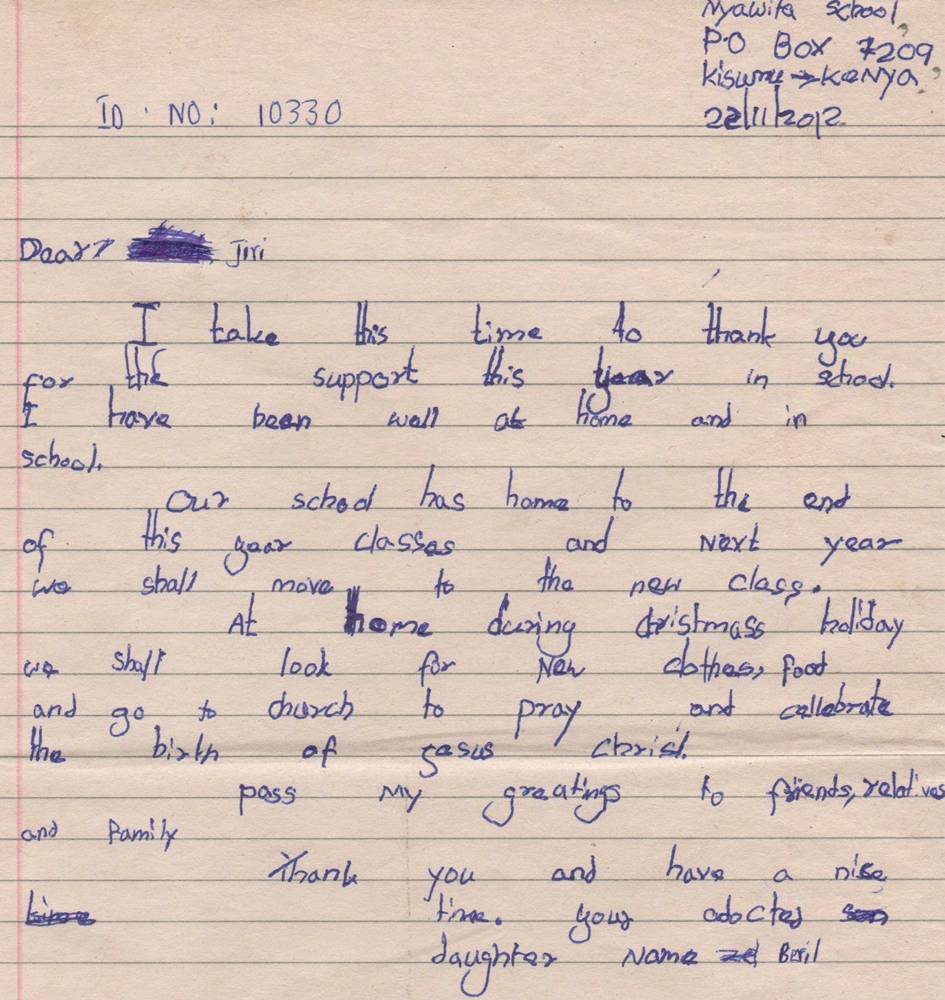 Nyawita School,
P.O Box 7209,
Kisumu → KENYA,
22/11/2012.
ID. NO: 10330
Dear, Jiri
I take this time to thank you
for the support this year in school.
I have been well at home and in
school.
Our school has home to the end
of this year classes and next year
we shall move to the new class.
At home during christmass holiday
we shall look for New clothes, food
and go to church to pray and cellebrate
the birth of jesus christ.
pass my greatings to friends, relatives
and Family
Thank you and have a nise
time time. your adocted son
daughter Name Beril